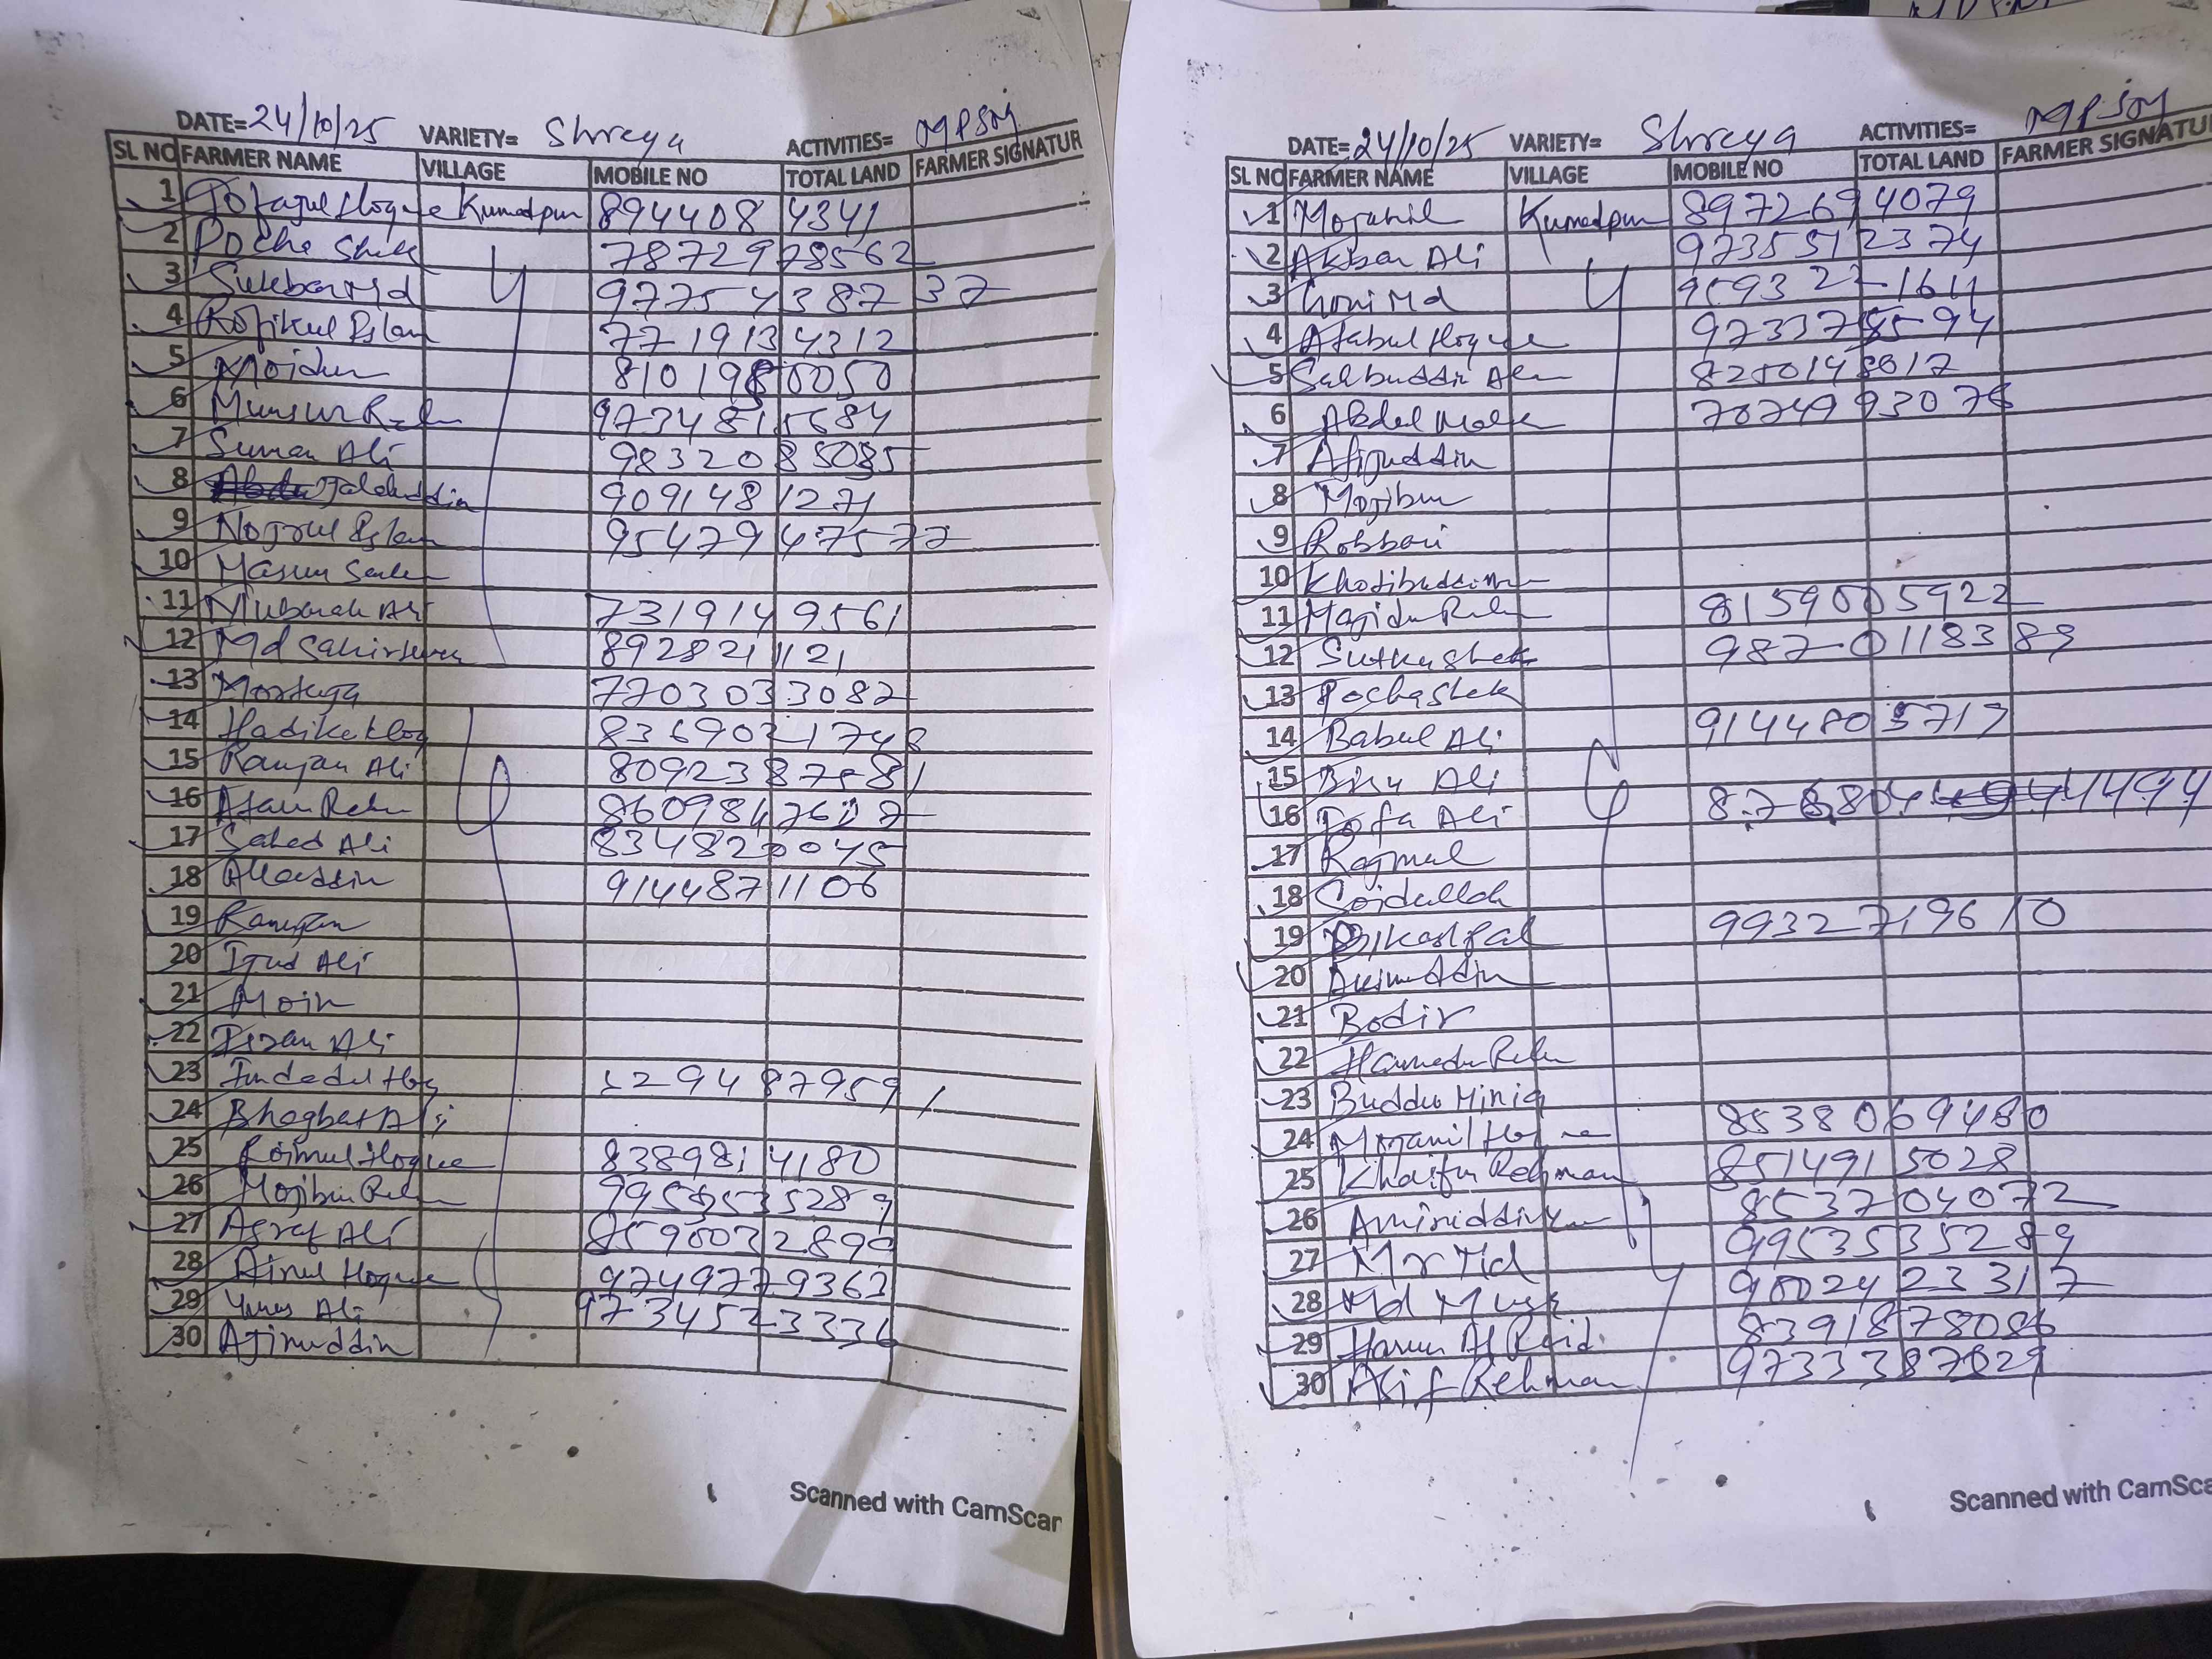 DATE= 24/10/25 VARIETY= Shreya ACTIVITIES= MPSM
SL NO FARMER NAME VILLAGE MOBILE NO TOTAL LAND FARMER SIGNATUR
1 Tofajul Hoque Kumedpur 8944084341
2 Poche Shek 78729 78562
3 Sukbar Md 97754 387 37
4 Rofikul Islam 7719134312
5 Moidur 8101980050
6 Munsur Rahn 9734815684
7 Suman Ali 9832085085
8 Jalaluddin 9091481271
9 Nojrul Islam 95479 47577
10 Masum
11 Mubarak Ali 7319149561
12 Md 8928211121
13 Mortuja 7703033082
14 Hadikul Hoq 8369021748
15 Ramjan Ali 8092387581
16 Afam Rehn 8609847627
17 Sahed Ali 8348220045
18 Allauddin 9144871106
19 Ramjan
20 Ijud Ali
21 Moin
22 Ali
23 Imdadul Hoq 5294879591
24 Bhogbat Ali
25 Roimul Hoque 8389814180
26 Mojibur Rehn 9953535289
27 Asraf Ali 8590032890
28 Ainul Hoque 9749779363
29 Yunus Ali 9734523336
30 Ajimuddin
Scanned with CamScar
DATE= 24/10/25 VARIETY= Shreya ACTIVITIES= MPSM
SL NO FARMER NAME VILLAGE MOBILE NO TOTAL LAND FARMER SIGNATUR
1 Mojahil Kumedpur 8972694079
2 Akbar Ali 9735512374
3 Goni Md 9593221611
4 Afabul Hoque 9733785594
5 8250148017
6 Abdul Malek 7074993076
7 Afijuddin
8 Mojibur
9 Robbani
10
11 Majidur Rehn 8159005922
12 987 0118389
13 Pocha Shek
14 Babul Ali 9144805717
15 Ali
16 Tofa Ali
17 Rajmul
18 Soidullah
19 Bikash Pal 9932719610
20 Akimuddin
21 Bodir
22 Hamedur Rehn
23 Buddu Minia
24 Mojamil Hoque 8538069480
25 Khaifur Rehman 8514915028
26 8537204072
27 Md 9953535289
28 Md Musa 9002423317
29 Harun Al Rasid 8391878086
30 Asif Rehman 9733387829
Scanned with CamSca